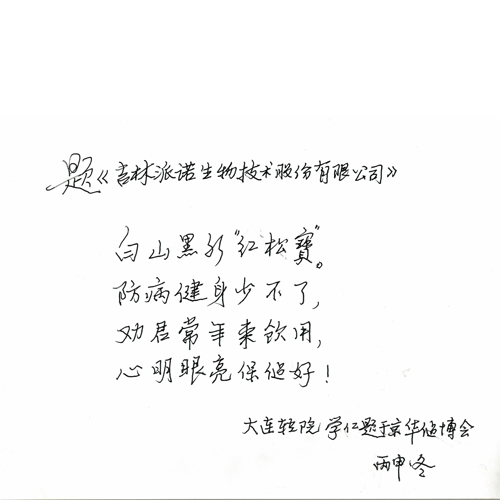 题《吉林派诺生物技术股份有限公司》
白山黑水"红松寶"。
防病健身少不了,
劝君常年来饮用,
心明眼亮保健好!
大连轻院 学仁题于京华健博会
丙申冬